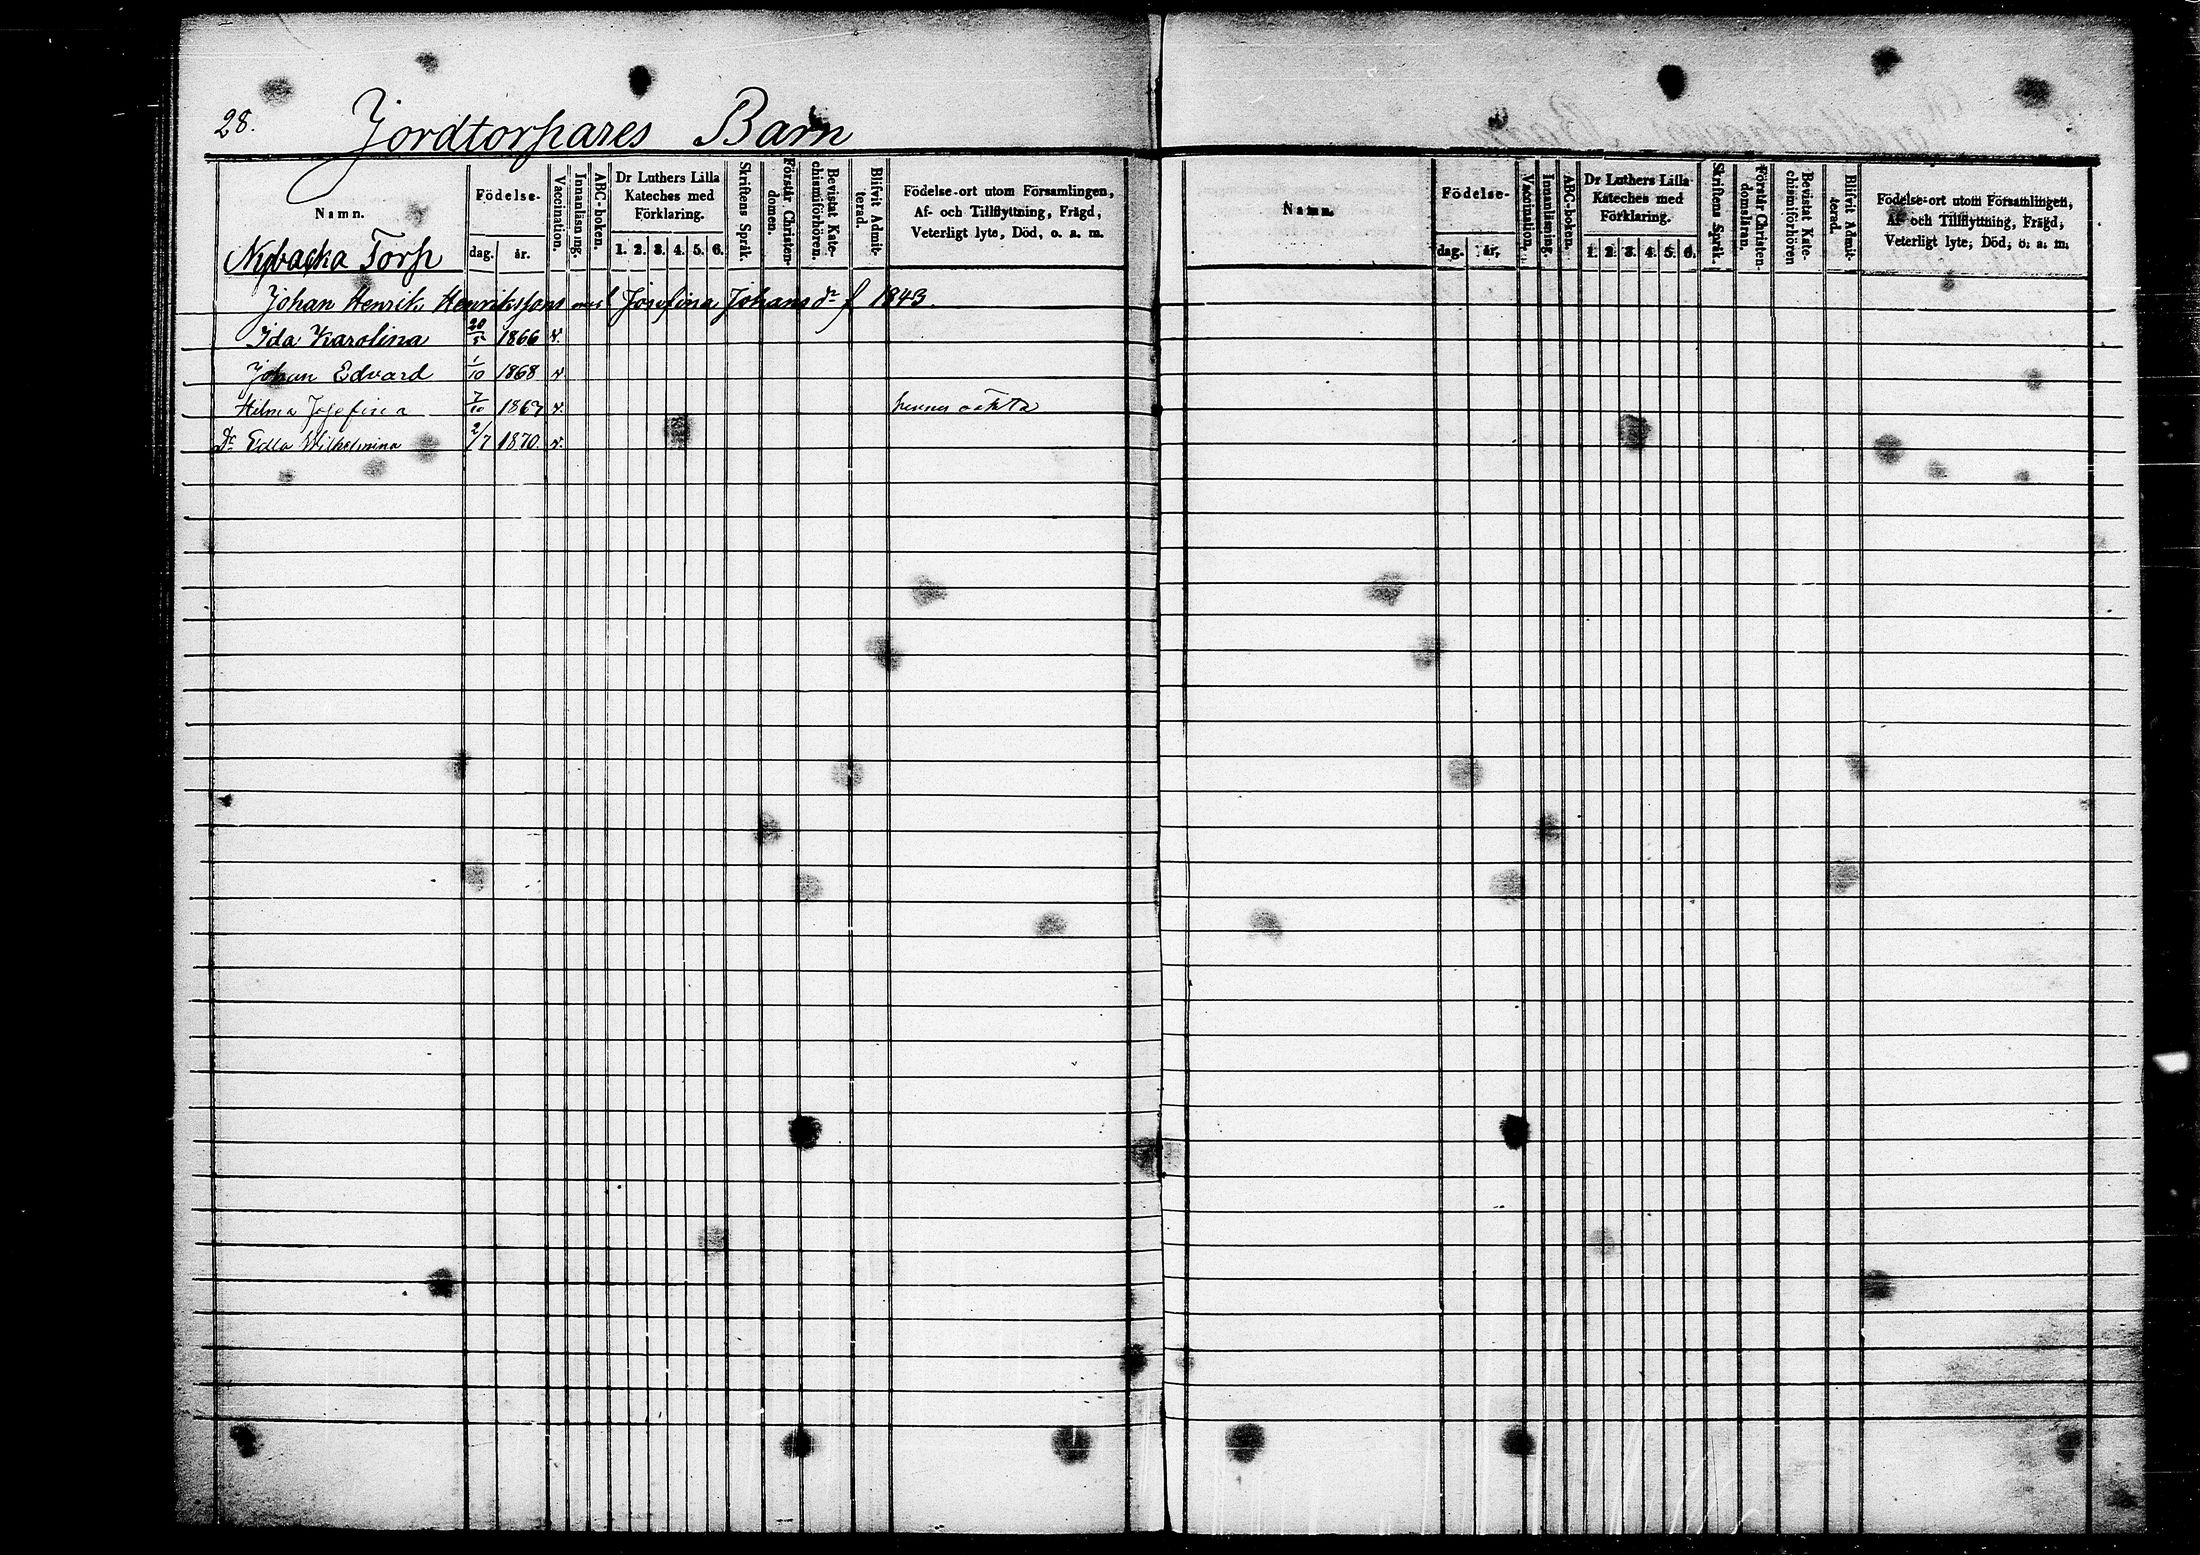 28.
Jordtorpares Barn
Namn.
Födelse-
dag. år.
Vaccination.
Innanläsning.
ABC-boken.
Dr Luthers Lilla
Kateches med
Förklaring.
1. 2. 3. 4. 5. 6.
Skriftens Språk.
Förstår Christen-
domen.
Bevistat Kate-
chismiförhören.
Blifvit Admit-
terad.
Födelse-ort utom Församlingen,
Af- och Tillflyttning, Frägd,
Veterligt lyte, Död, o. a. m.
Nybacka Torp
Johan Henrik Henrikssons med Josefina Johansdr f 1843.
Ida Karolina 20/5 1866 v.
Johan Edvard 1/10 1868 v.
Hilma Josefina 7/10 1867 v. hennes oäkta
Dr Edla Wilhelmina 2/7 1870. v.
Namn.
Födelse-
dag. år.
Vaccination.
Innanläsning.
ABC-bokan.
Dr Luthers Lilla
Kateches med
Förklaring.
1. 2. 3. 4. 5. 6.
Skriftens Språk.
Förstår Christen-
domsläran.
Bevistat Kate-
chismiförhören
Blifvit Admit-
terad.
Födelse-ort utom Församlingen,
Af- och Tillflyttning, Frägd,
Veterligt lyte, Död, o. a. m.